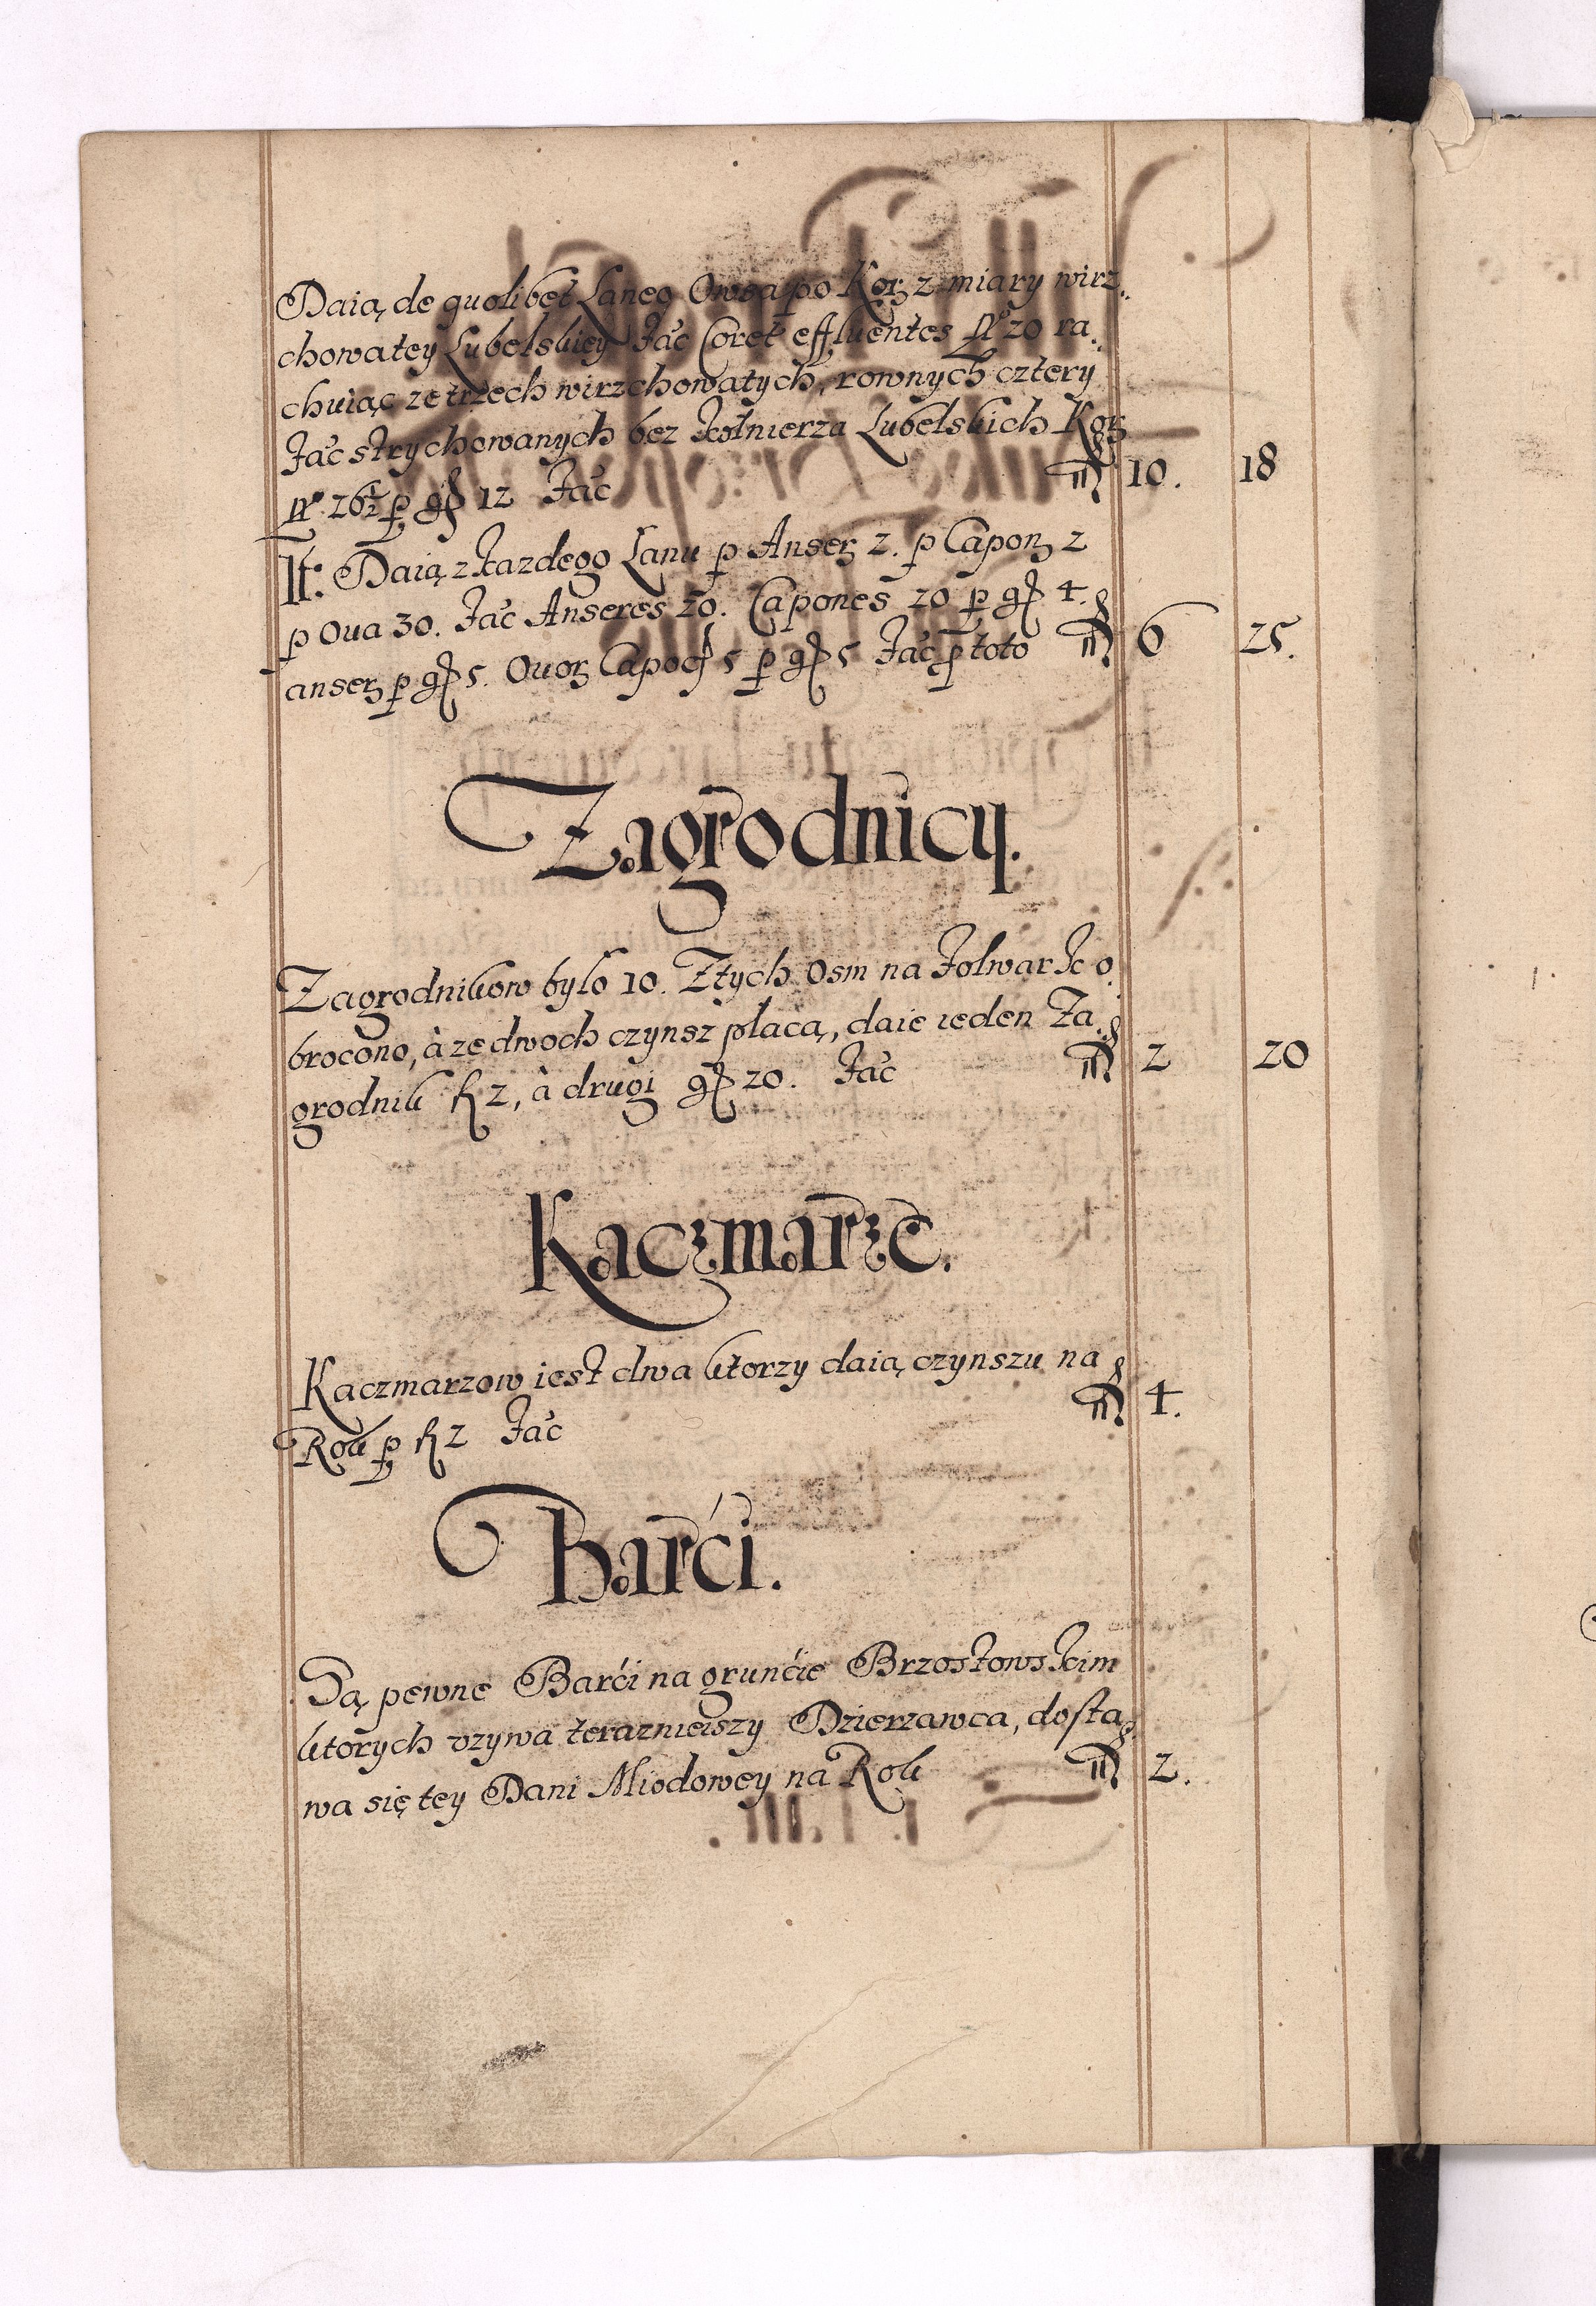 Daią de quolibet Laneo Owsa po Korz z miary wirz-
chowatey Lubelskiey fac Coret effluentes Nº 20 ra-
chuiąc ze trzech wirzchowatych, rownych cztery
fac strychowanych bez kołnierza Lubelskich Korz
Nº 26½ p gr 12 fac 10. 18
It: Daią z kazdego Lanu p Anserz 2. p Caponz 2
p Oua 30. fac Anseres 20. Capones 20 p gr 4.
anserz p gr 5. Ouorz Capocz 5 p gr 5 fac p toto 6 25.
Zagrodnicy.
Zagrodnikow bylo 10. Z tych Osm na folwark o-
brocono, à ze dwoch czynsz płacą, daie ieden Za-
grodnik fl 2, à drugi gr 20. fac 2 20
Kaczmarze.
Kaczmarzow iest dwa ktorzy daią czynszu na
Rok p fl 2 fac 4.
Barći.
Są pewne Barći na grunćie Brzostowskim
ktorych vzywa teraznieiszy Dzierzawca, dosta-
wa się tey Dani Miodowey na Rok 2.